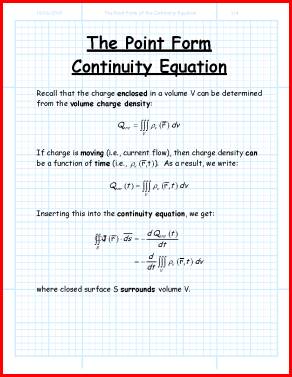 10/26/2004 The Point Form of the Continuity Equation 1/4
The Point Form
Continuity Equation
Recall that the charge enclosed in a volume V can be determined
from the volume charge density:
Qenc = ∭V ρv (r̅) dv
If charge is moving (i.e., current flow), then charge density can
be a function of time (i.e., ρv (r̅,t)). As a result, we write:
Qenc (t) = ∭V ρv (r̅,t) dv
Inserting this into the continuity equation, we get:
∯S J (r̅) · ds̅ = − d Qenc (t) / dt
= − d/dt ∭V ρv (r̅,t) dv
where closed surface S surrounds volume V.